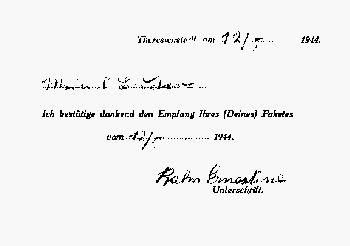 Theresienstadt am 12/ 1944.
Ich bestätige dankend den Empfang Ihres (Deines) Paketes
vom 12/ 1944.
Hahn Ernestine
Unterschrift.